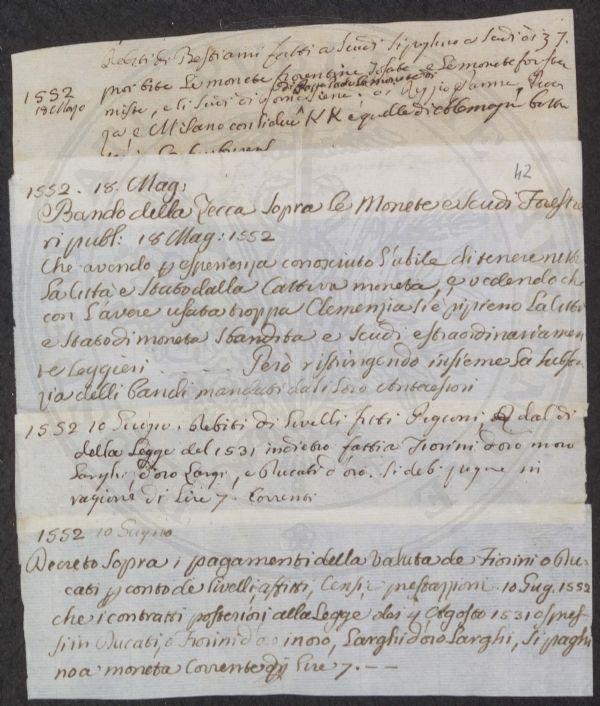 Debiti di Bestiami fatti a Scudi si paghino a Scudi di 37.
1552
18 Mago
proibite Le monete fiorentine tosate, e Le monete fore
miste, e li Scudi di
e Milano con li due KK e quelle di
42
1552. 18. Mag:
Bando della Zecca Sopra le Monete e Scudi Forestie
ri publ: 18 Mag: 1552
Che avendo p esperienza conosciuto L'utile di tenere netta
La Città e Stato dalla Cattiva moneta, e vedendo che
con L'avere usata troppa Clemenzia si è ripieno La Città
e Stato di moneta Sbandita e Scudi estraordinariamen
te Leggieri . . . . . Però ristringendo insieme La sustan
zia delli bandi mandati da i Loro antecessori
1552 10 Giugno. Debiti di Livelli fitti Pigioni, dal dì
della Legge del 1531 indietro fatti a Fiorini d'oro in oro
Larghi d'oro Largi, e Ducati d'oro. Si deb: pagare in
ragione di Lire 7. Correnti
1552 10 Gugno
Decreto Sopra i pagamenti della Valuta de Fiorini o Du-
cati p conto de Livelli affitti, Censi e prestazioni. 10 Giug. 1552
che i contratti posteriori alla Legge dei 4 Agosto 1531 espres-
si in Ducati, o Fiorini d'oro in oro, Larghi d'oro Larghi, Si paghi
no a moneta Corrente di Lire 7. — —